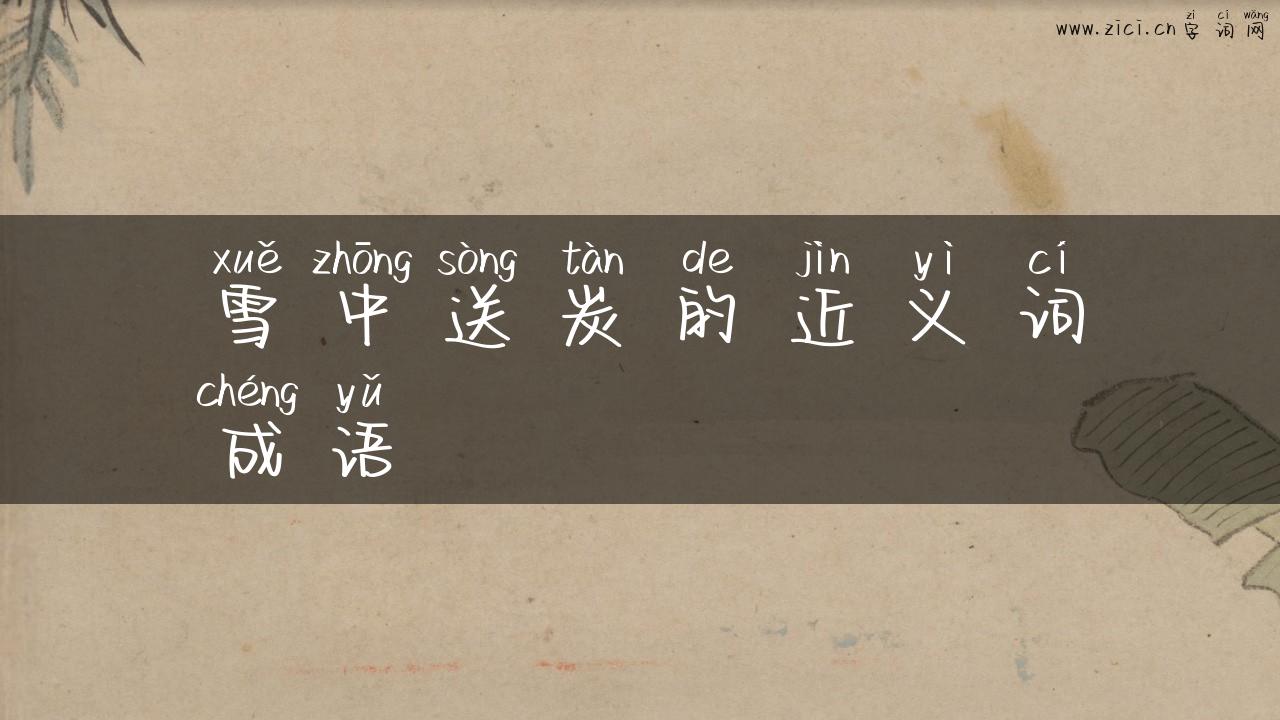 zì cí wǎng
www.zici.cn 字词网
xuě zhōng sòng tàn de jìn yì cí
雪中送炭的近义词
chéng yǔ
成语